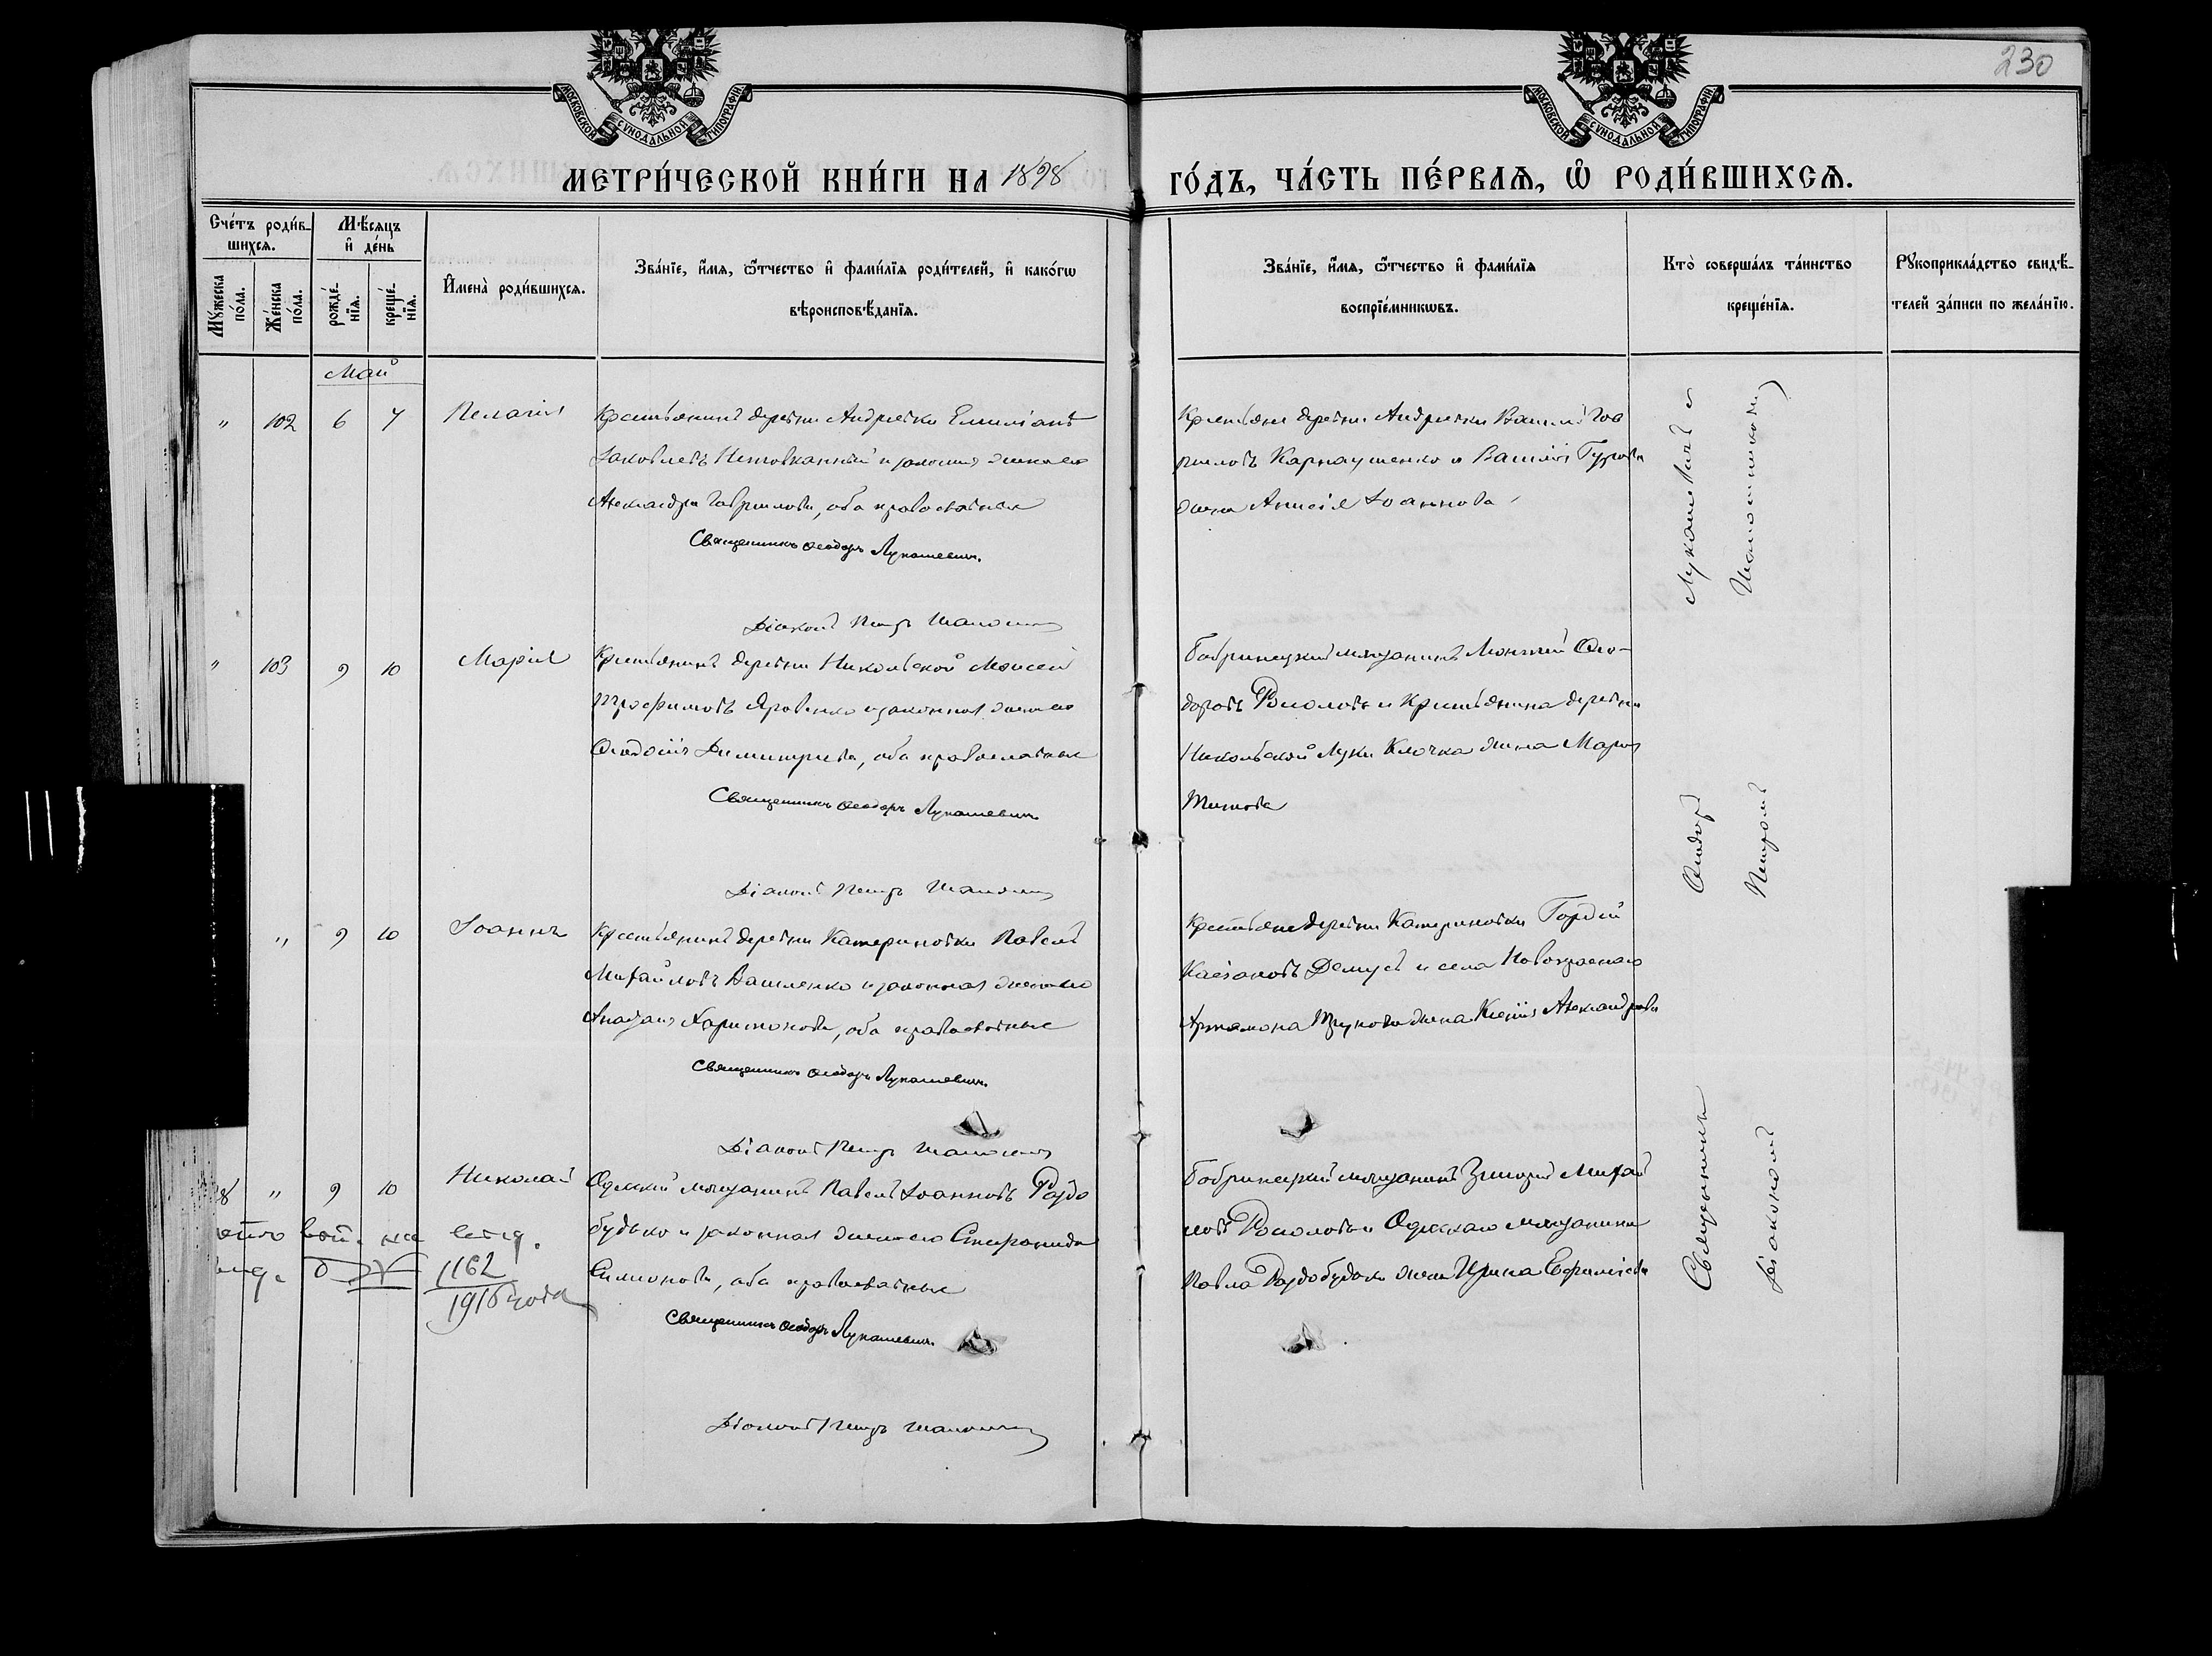 230
МОСКОВСКОЙ СѴНОДАЛЬНОЙ ТИПОГРАФІИ
МОСКОВСКОЙ СѴНОДАЛЬНОЙ ТИПОГРАФІИ
МЕТРИ́ЧЕСКОЙ КНИ́ГИ НА 1898 ГО́ДЪ, ЧА́СТЬ ПЕ́РВАѦ, Ѡ҆ РОДИ́ВШИХСѦ.
Сче́тъ роди́в-
шихсѧ.
Мꙋ́жеска по́ла.
Же́нска по́ла.
Мѣ́сѧцъ и҆ де́нь
рожде́-нїѧ.
креще́-нїѧ.
И҆мена̀ роди́вшихсѧ.
Зва́нїе, и҆́мѧ, ѻ҆́тчество и҆ фами́лїѧ роди́телей, и҆ како́гѡ
вѣроисповѣ́данїѧ.
Зва́нїе, и҆́мѧ, ѻ҆́тчество и҆ фами́лїѧ
воспрїе́мникѡвъ.
Кто̀ соверша́лъ та́инство
креще́нїѧ.
Рꙋкоприкла́дство свидѣ́-
телей за́писи по жела́нїю.
Май
" 102 6 7 Пелагія
Крестьянинъ деревни Андреевки Емиліанъ
Іаковлевъ и законная жена его
Александра Гаврилова, оба православные
Священникъ Ѳеодоръ Лукашевич.
Діаконъ Петръ
Крестьяне деревни Андреевки Василій Гав
риловъ Карнаушенко и Василія Гурова
жена Анисія Іоаннова
" 103 9 10 Марія
Крестьянинъ деревни Никольской Моисей
Трофимовъ Яровенко и законная жена его
Ѳеодосія Димитріева, оба православные
Священникъ Ѳеодоръ Лукашевич.
Діаконъ Петръ
Бобринецкій мѣщанинъ Ѳео-
доровъ и крестьянина деревни
Никольской Луки Клочка жена Марія
Титова
" 9 10 Іоаннъ
Крестьянинъ деревни Катериновки Павелъ
Михайловъ Василенко и законная жена его
Харитонова, оба православные
Священникъ Ѳеодоръ Лукашевич.
Діаконъ Петръ
Крестьяне деревни Катериновки Гордій
Касіановъ Демусъ и села Новокрасного
Артамона жена Ксенія Александрова
8 " 9 10 Николай
Одесскій мѣщанинъ Павелъ Іоанновъ Раздо
будько и законная жена его Стефанида
Симионова, оба православные
Священникъ Ѳеодоръ Лукашевич.
Діаконъ Петръ
1162
1916 года
Бобринецкій мѣщанинъ Григорій Михай
ловъ и Одесскаго мѣщанина
Павла Раздобудько жена Ирина Ефиміева
Священникъ Ѳеодоръ Лукашевичъ с
Діакономъ Петромъ